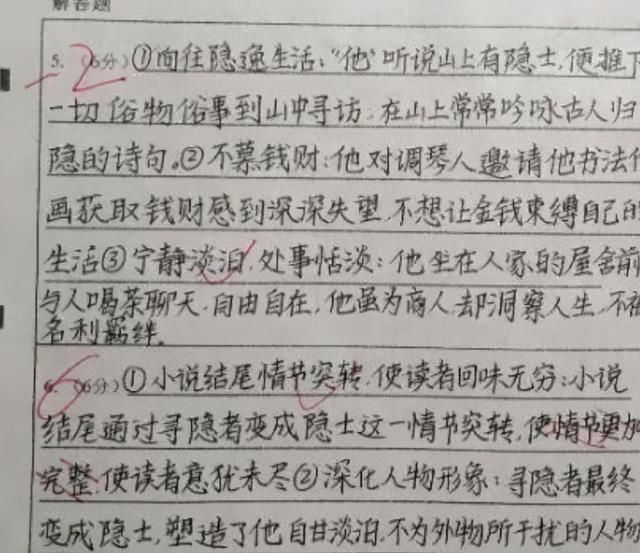 解答题
5. (6分) ①向往隐逸生活:“他”听说山上有隐士,便推下
一切俗物俗事到山中寻访,在山上常常吟咏古人归
隐的诗句。②不慕钱财:他对调琴人邀请他书法作
画获取钱财感到深深失望,不想让金钱束缚自己的
生活③宁静淡泊,处事恬淡:他坐在人家的屋舍前
与人喝茶聊天,自由自在,他虽为商人,却洞察人生,不被
名利羁绊。
6. (6分) ①小说结尾情节突转,使读者回味无穷:小说
结尾通过寻隐者变成隐士这一情节突转,使情节更加
完整,使读者意犹未尽②深化人物形象:寻隐者最终
变成隐士,塑造了他自甘淡泊,不为外物所干扰的人物